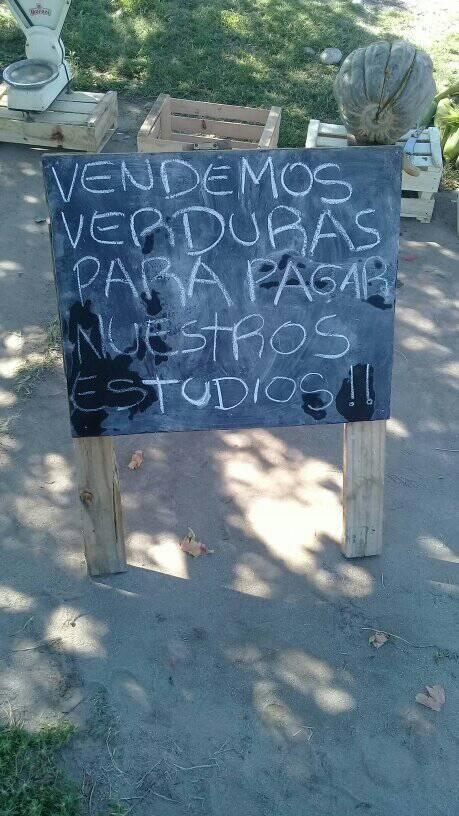 VENDEMOS
VERDURAS
PARA PAGAR
NUESTROS
ESTUDIOS !!